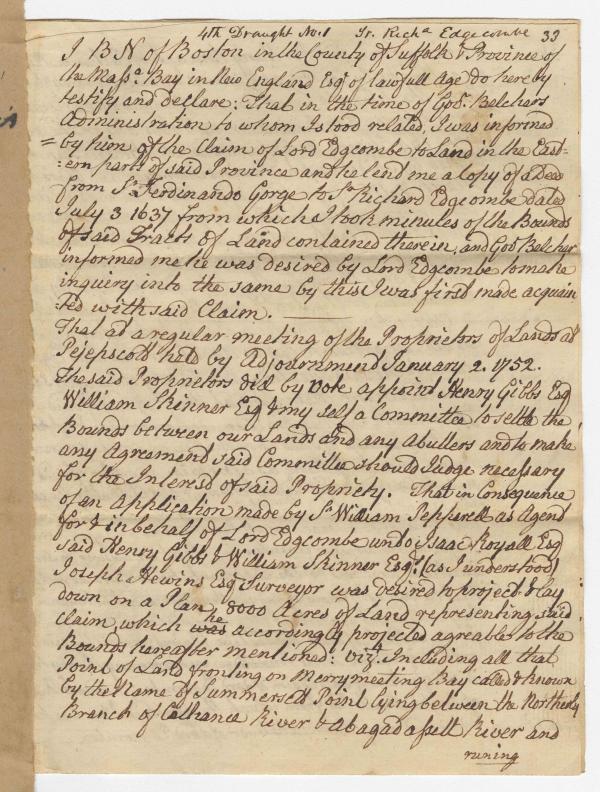 4th Draught No. 1 Sr. Richd Edgecombe 33
I B N of Boston in the County of Suffolk & Province of
the Massa. Bay in New England Esqr of lawfull Age do hereby
testify and declare: That in the time of Govr. Belchers
Administration to whom I stood related, I was informed
= by him of the Claim of Lord Edgcombe to Land in the East-
:ern parts of said Province and he lend me a Copy of a Deed
from Sr. Ferdinando Gorge to Sr. Richard Edgcombe dated
July 3 1637 from which I took minutes of the Bounds
of said Tracts of Land contained therein, and Govr Belcher
informed me he was desired by Lord Edgcombe to make
inquiry into the same by this I was first made acquain
:ted with said Claim.
That at a regular meeting of the Proprietors of Lands at
Pejepscott held by Adjournment January 2. 1752.
The said Proprietors did by Vote appoint Henry Gibbs Esq
William Skinner Esq & my self a Committee to settle the
Bounds between our Lands and any Abutters and to make
any Agreement said Committee should Judge necessary
for the Interest of said Propriety. That in Consequence
of an Application made by Sr. William Pepperell as Agent
for & in behalf of Lord Edgcombe unto Isaac Royall Esq
said Henry Gibbs & William Skinner Esqr. (as I understood)
Joseph Hewins Esq Surveyor was desired to project & lay
down on a Plan, 8000 Acres of Land representing said
claim, which was he accordingly projected agreable to the
Bounds hereafter mentioned: vizt. Including all that
Point of Land fronting on Merrymeeting Bay called & known
by the Name of Summersett Point lying between the Northerly
Branch of Cathance River & Abagadassett River and
runing